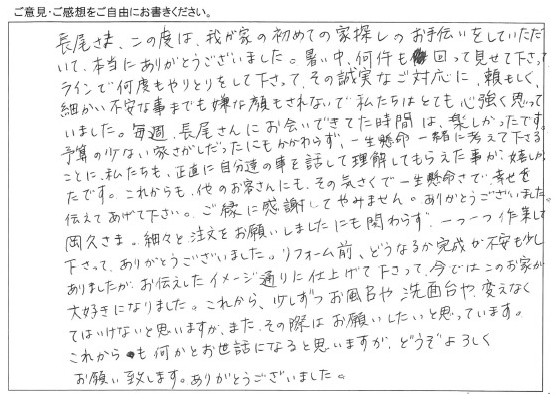 ご意見・ご感想をご自由にお書きください。
長尾さま、この度は、我が家の初めての家探しのお手伝いをしていただ
いて、本当にありがとうございました。暑い中、何件も回って見せて下さって
ラインで何度もやりとりをして下さって、その誠実なご対応に、頼もしく、
細かい不安な事までも嫌な顔もされないで私たちはとても心強く思って
いました。毎週、長尾さんにお会いできてた時間は、楽しかったです。
予算の少ない家さがしだったにもかかわらず、一生懸命一緒に考えて下さる
ことに、私たちも、正直に自分達の事を話して理解してもらえた事が、嬉しかっ
たです。これからも、他のお客さんにも、その気さくで一生懸命さで、幸せを
伝えてあげて下さい。ご縁に感謝してやみません。ありがとうございました。
岡久さま。細々と注文をお願いしましたにも関わらず、一つ一つ作業して
下さって、ありがとうございました。リフォーム前、どうなるか完成が不安も少し
ありましたが、お伝えしたイメージ通りに仕上げて下さって、今ではこのお家が
大好きになりました。これから、少しずつお風呂や洗面台や、変えなく
てはいけないと思いますが、また、その際はお願いしたいと思っています。
これからも何かとお世話になると思いますが、どうぞよろしく
お願い致します。ありがとうございました。